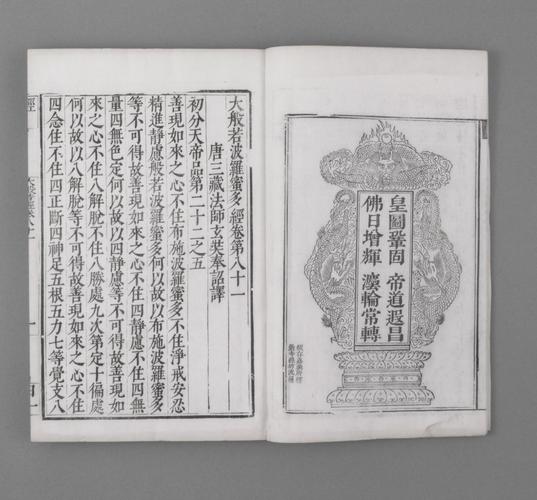 皇圖鞏固 帝道遐昌
佛日增輝 灋輪常轉
大般若波羅蜜多經卷第八十一
唐三藏法師玄奘奉 詔譯
初分天帝品第二十二之五
善現如來之心不住布施波羅蜜多不住淨戒安忍
精進靜慮般若波羅蜜多何以故以布施波羅蜜多
等不可得故善現如來之心不住四靜慮不住四無
量四無色定何以故以四靜慮等不可得故善現如
來之心不住八解脫不住八勝處九次第定十徧處
何以故以八解脫等不可得故善現如來之心不住
四念住不住四正斷四神足五根五力七等覺支八
經